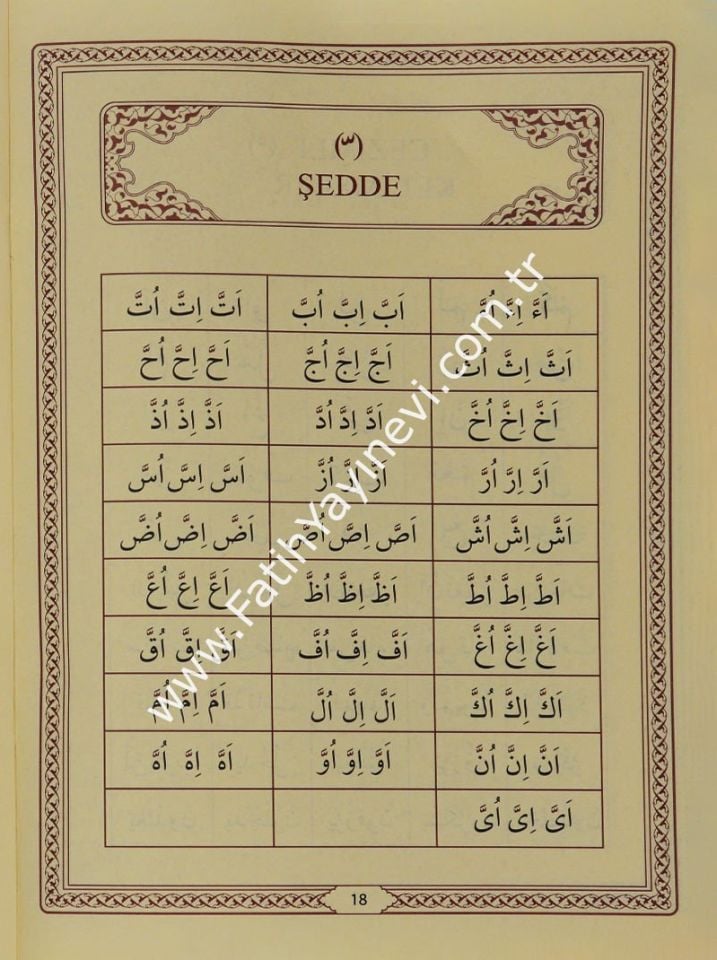 (ّ)
ŞEDDE
اَءَّ اِءَّ اُءَّ اَبَّ اِبَّ اُبَّ اَتَّ اِتَّ اُتَّ
اَثَّ اِثَّ اُثَّ اَجَّ اِجَّ اُجَّ اَحَّ اِحَّ اُحَّ
اَخَّ اِخَّ اُخَّ اَدَّ اِدَّ اُدَّ اَذَّ اِذَّ اُذَّ
اَرَّ اِرَّ اُرَّ اَزَّ اِزَّ اُزَّ اَسَّ اِسَّ اُسَّ
اَشَّ اِشَّ اُشَّ اَصَّ اِصَّ اُصَّ اَضَّ اِضَّ اُضَّ
اَطَّ اِطَّ اُطَّ اَظَّ اِظَّ اُظَّ اَعَّ اِعَّ اُعَّ
اَغَّ اِغَّ اُغَّ اَفَّ اِفَّ اُفَّ اَقَّ اِقَّ اُقَّ
اَكَّ اِكَّ اُكَّ اَلَّ اِلَّ اُلَّ اَمَّ اِمَّ اُمَّ
اَنَّ اِنَّ اُنَّ اَوَّ اِوَّ اُوَّ اَهَّ اِهَّ اُهَّ
اَىَّ اِىَّ اُىَّ
www.FatihYayinevi.com.tr
18